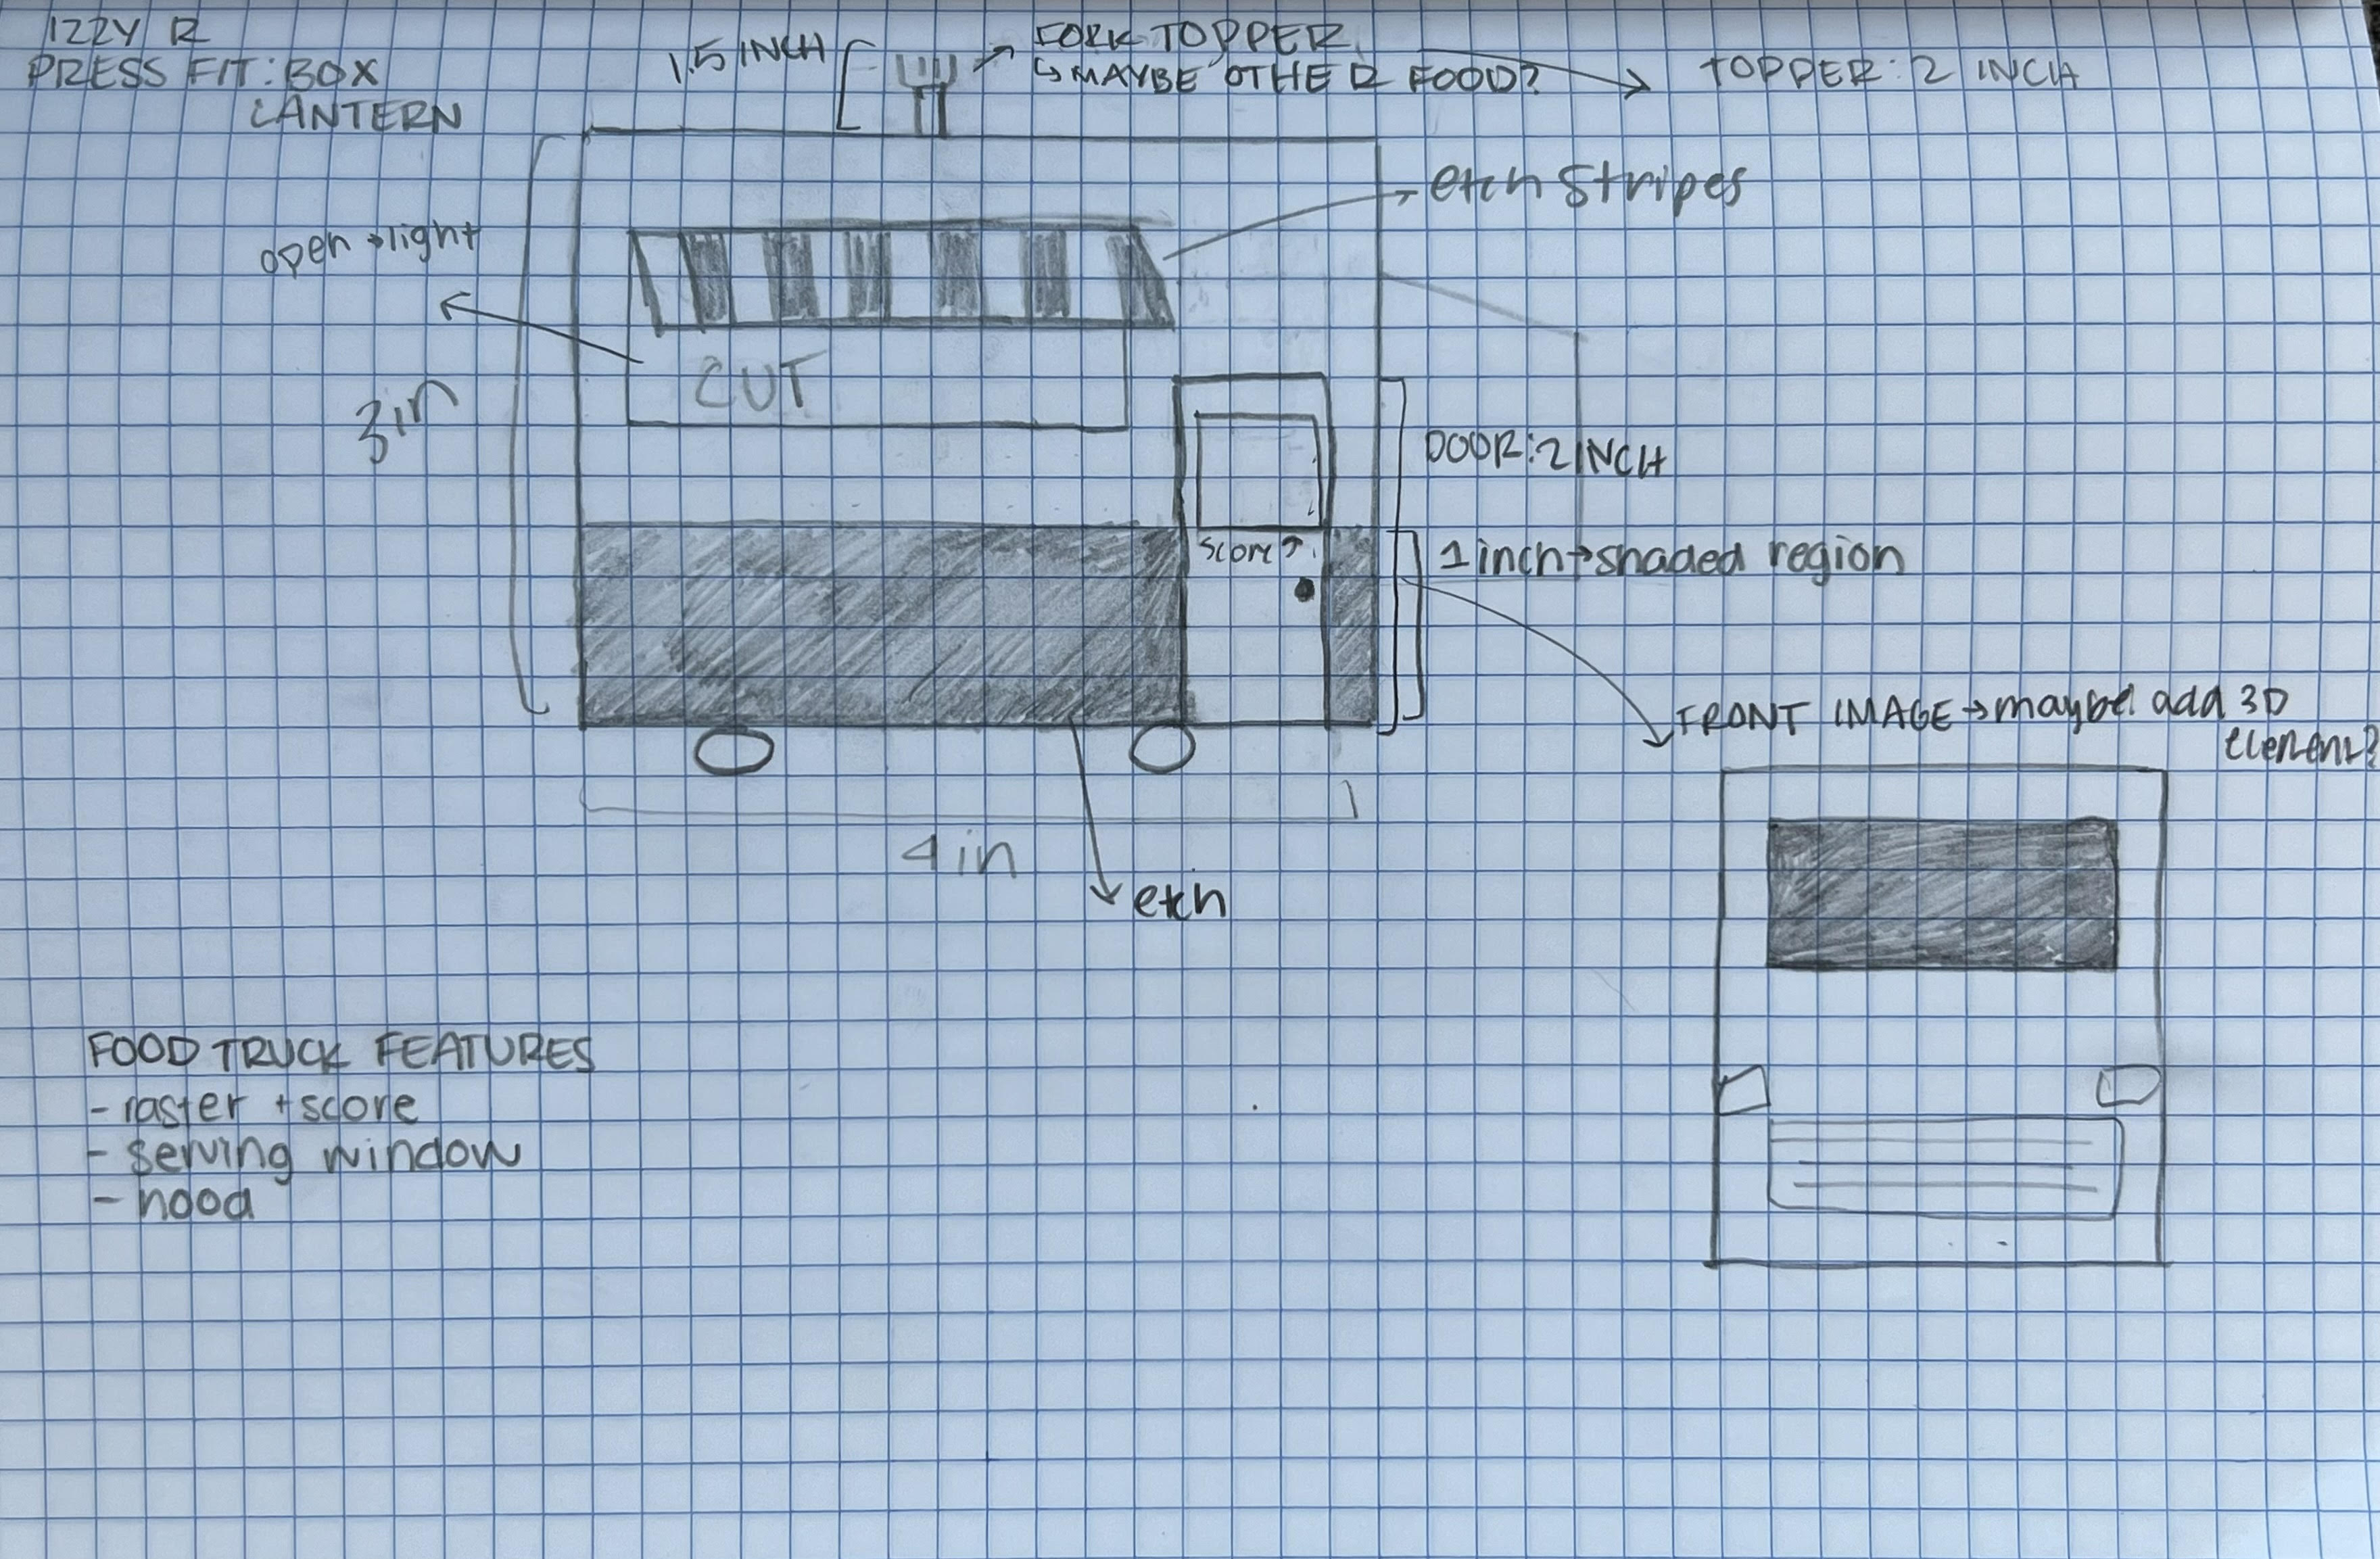 IZZY R
PRESS FIT: BOX
LANTERN
1.5 INCH
FORK TOPPER
↳ MAYBE OTHER FOOD?
TOPPER: 2 INCH
etch stripes
open → light
CUT
3in
DOOR: 2 INCH
score ↗
1 inch → shaded region
FRONT IMAGE → maybe add 3D
element?
4in
etch
FOOD TRUCK FEATURES
- raster + score
- serving window
- hood